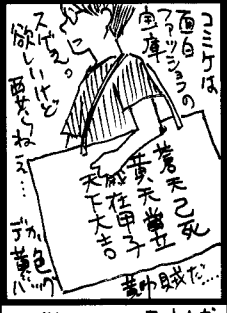 コミケは
面白
ファッションの
宝庫
スゲぇ。
欲しいけど
要らねぇ…
蒼天已死
黄天當立
歳在甲子
天下大吉
デカい
黄色
バッグ
黄巾賊だ…